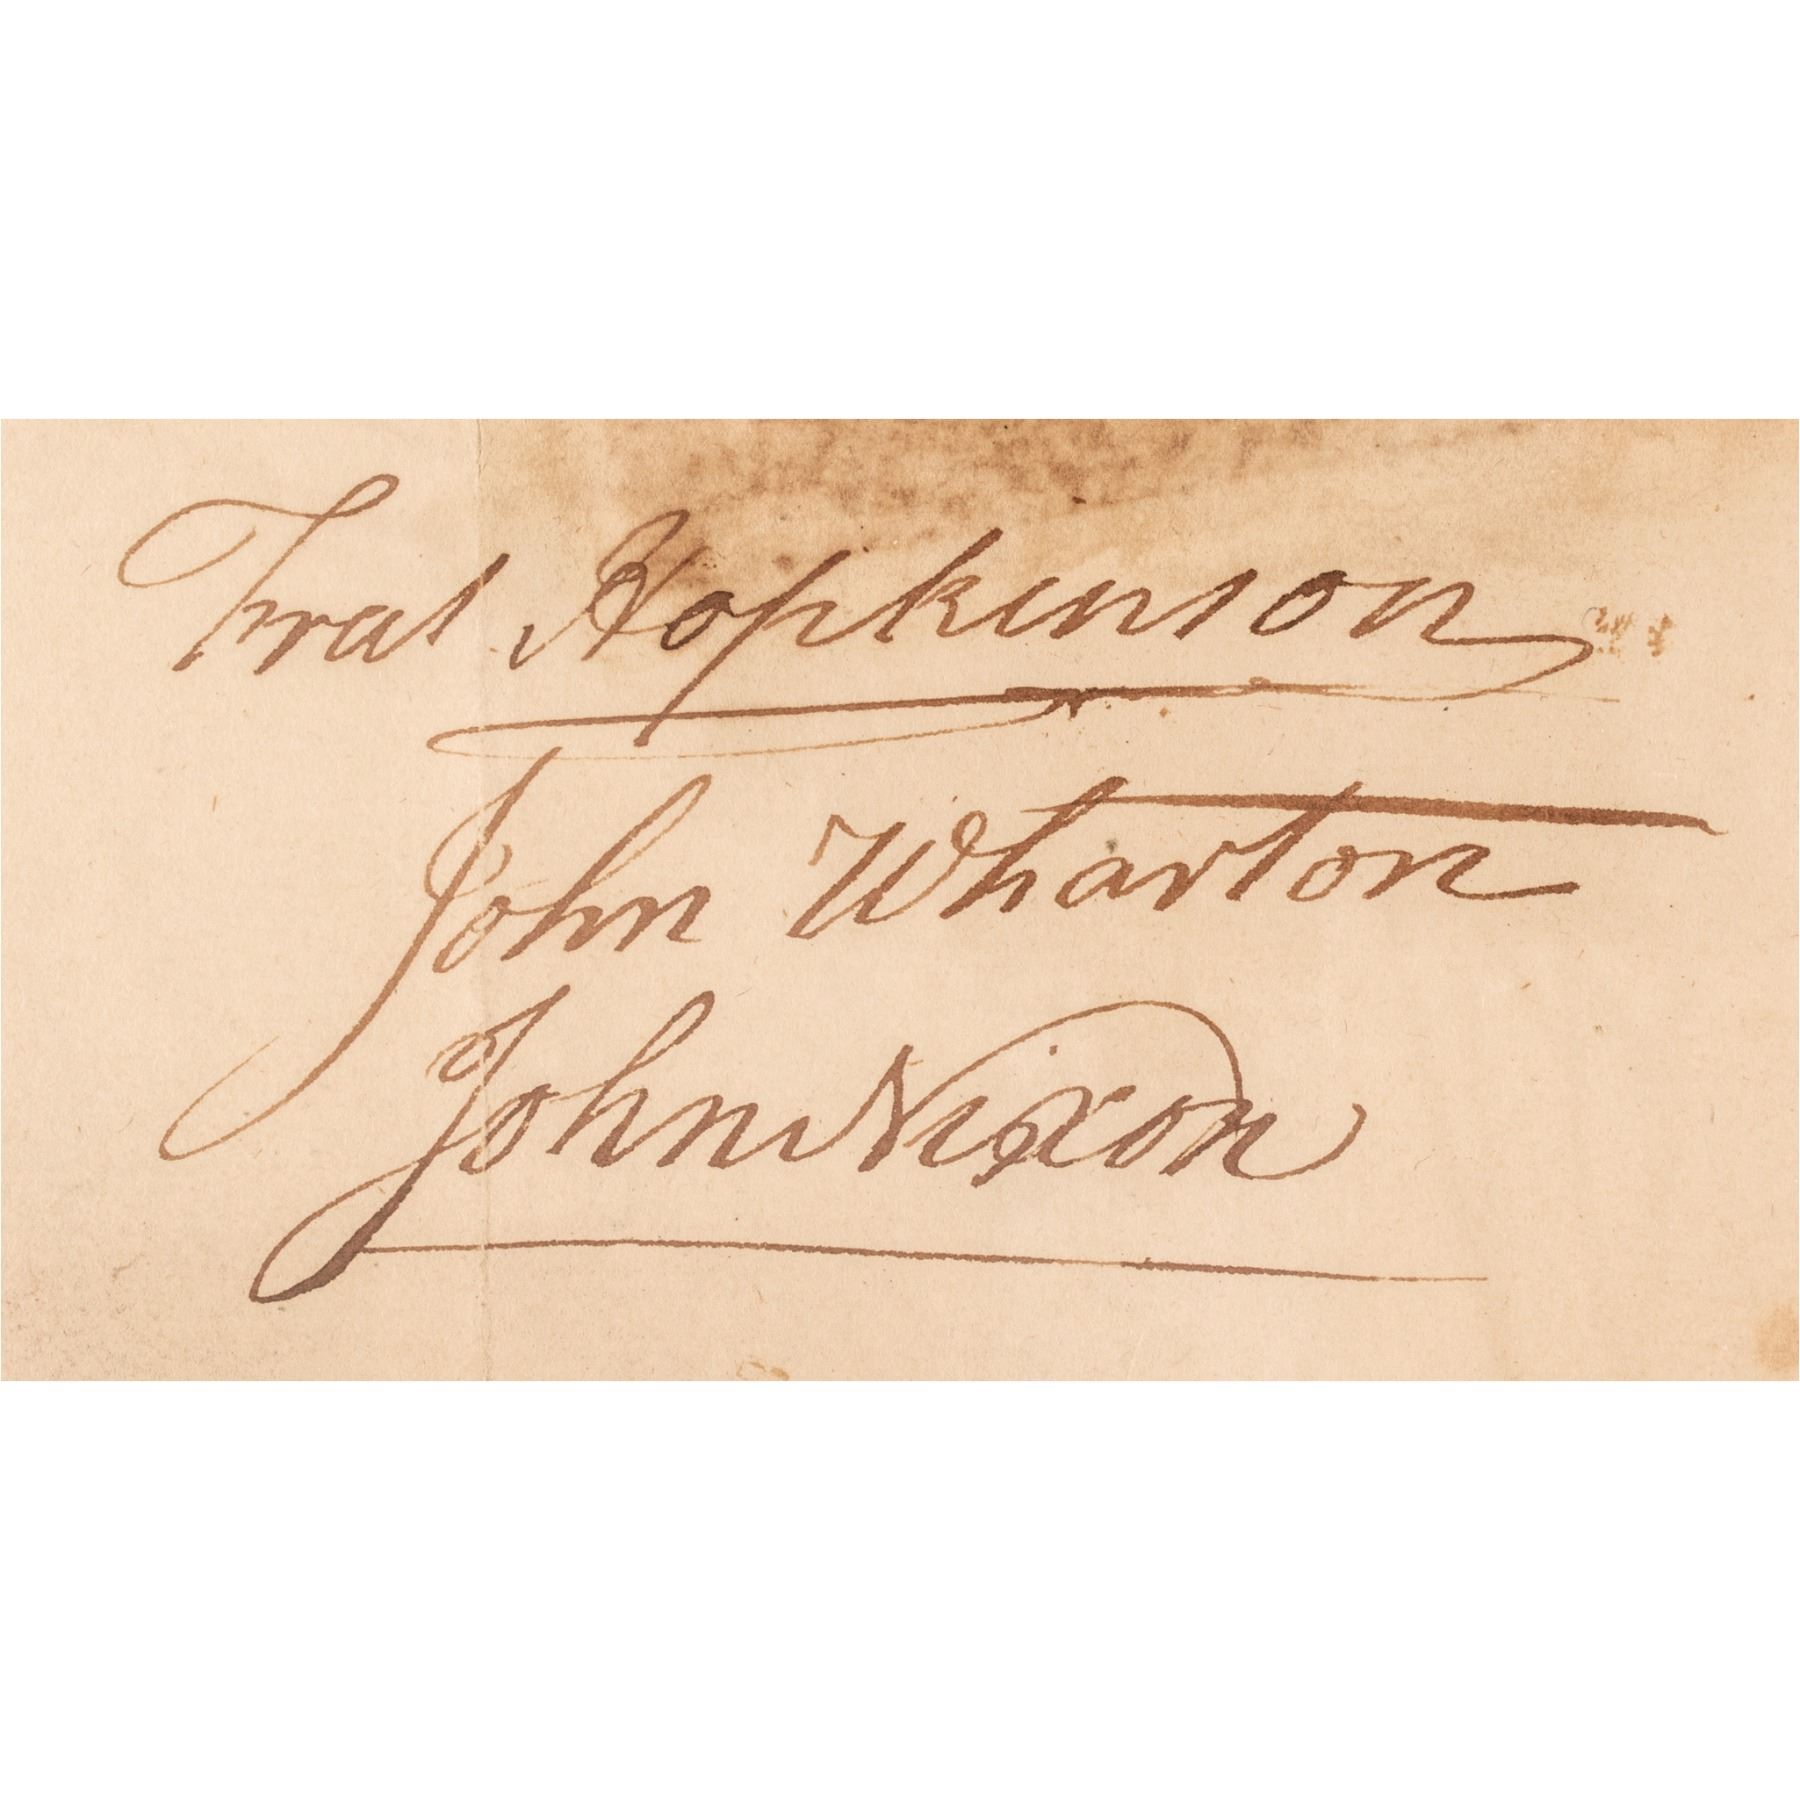 Fras Hopkinson
John Wharton
John Nixon